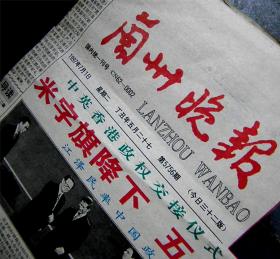 兰州晚报
LANZHOU WANBAO
国内统一刊号:CN62-0002
1997年7月1日 星期二 丁丑年五月二十七 第5756期 (今日三十二版)
中英香港政权交接仪式
米字旗降下 五
江泽民率中国政